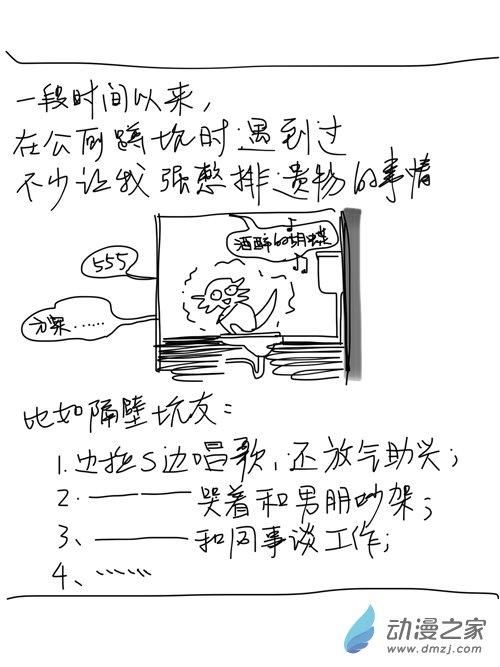 一段时间以来，
在公厕蹲坑时遇到过
不少让我强憋排遗物的事情
酒醉的蝴蝶
555
方案……
比如隔壁坑友：
1.边拉S边唱歌，还放气助兴；
2.———哭着和男朋吵架；
3、———和同事谈工作；
4、……
动漫之家
www.dmzj.com